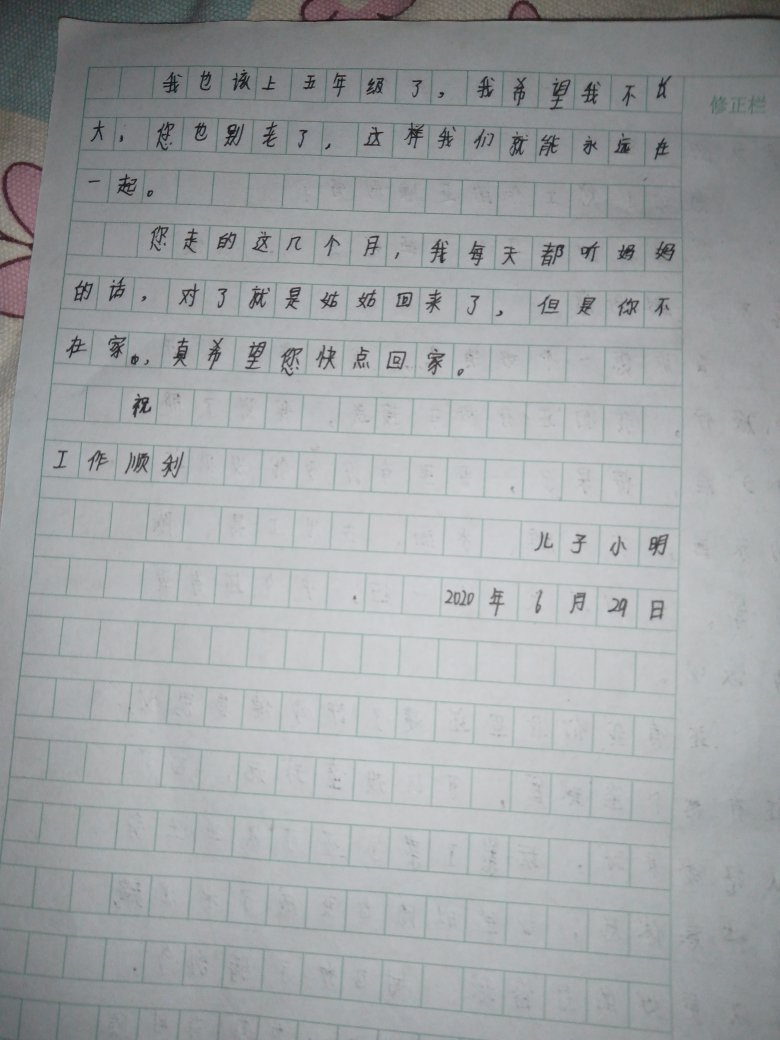 我也该上五年级了，我希望我不长
大，您也别老了，这样我们就能永远在
一起。
您走的这几个月，我每天都听妈妈
的话，对了就是姑姑回来了，但是你不
在家。，真希望您快点回家。
祝
工作顺利
儿子小明
2020年6月29日
修正栏